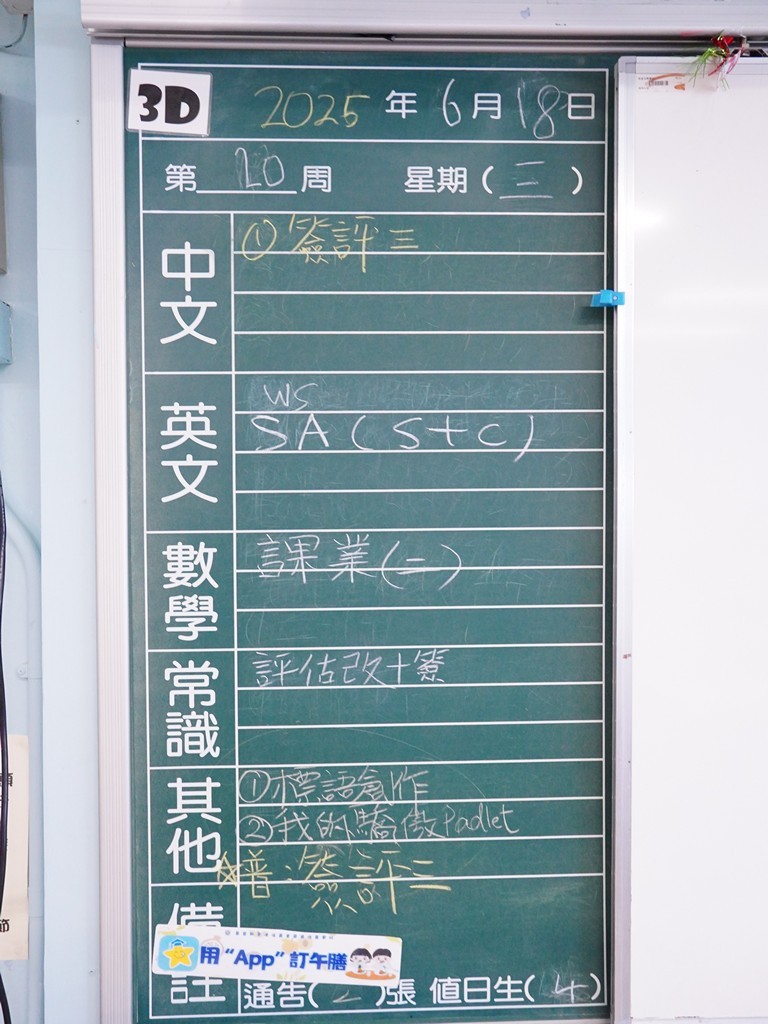 3D
2025年6月18日
第20周 星期(三)
中文
①簽評三
英文
WS
SA(S+C)
數學
課業(二)
常識
評估改+簽
其他
①標語創作
②我的驕傲Padlet
☆普:簽評三
備註
用“App”訂午膳
通告( )張 值日生(4)